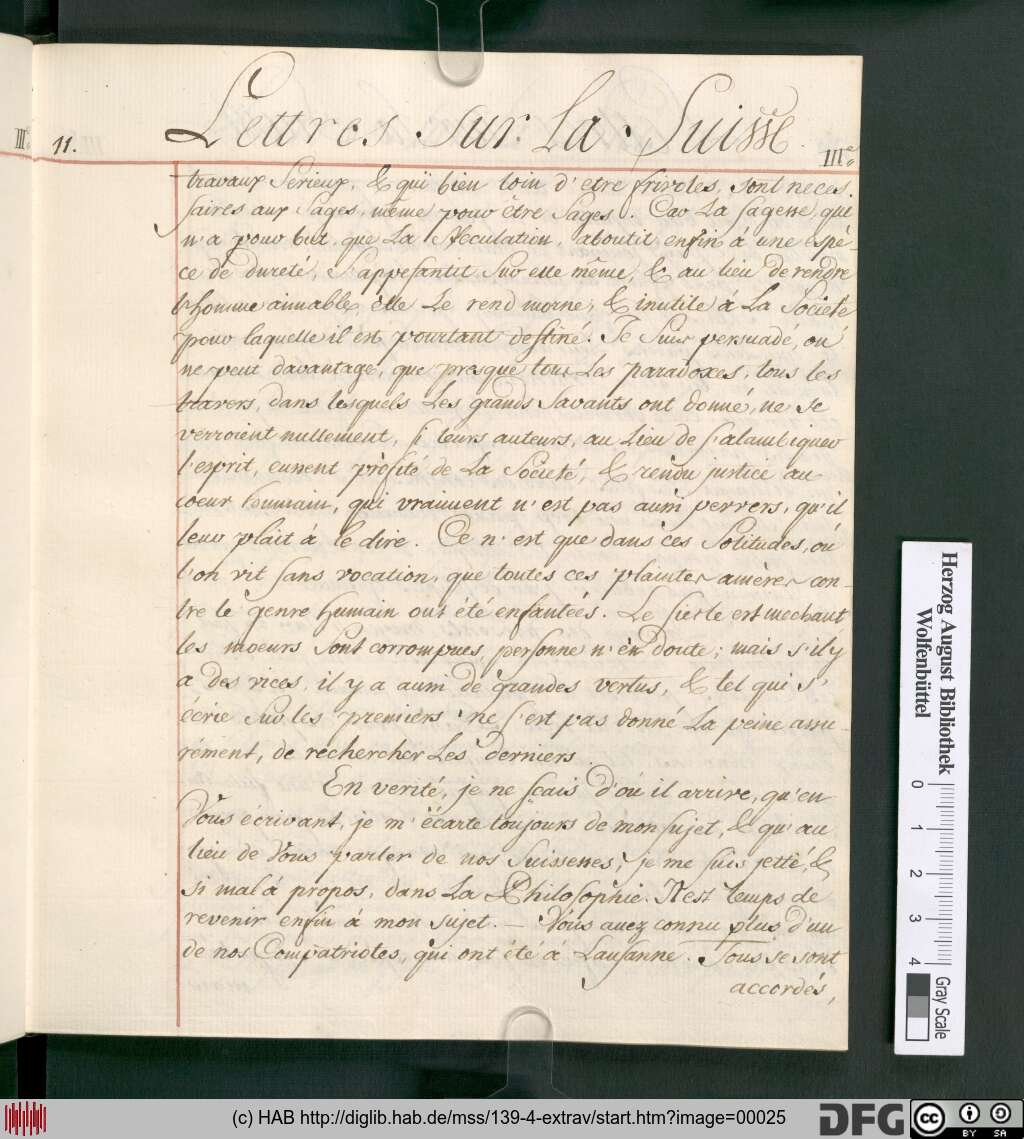 III.
11.
Lettres sur la Suisse.
IIIe.
travaux serieux, & qui bien loin d'etre frivoles, sont neces-
saires aux sages, même pour être sages. Car La sagesse, qui
n'a pour but, que La speculation, aboutit enfin á une espè-
ce de dureté, S'appesantit sur elle même, & au lieu de rendre
l'homme aimable, elle Le rend morne, & inutile á La Societé
pour laquelle il est pourtant destiné. Je suis persuadé, on
ne peut davantage, que presque tous Les paradoxes, tous les
travers, dans lesquels Les grands Savants ont donné, ne se
verroient nullement, si leurs auteurs, au Lieu de s'alambiquer
l'esprit, eussent profité de La Societé, & rendu justice au
coeur humain, qui vraiment n'est pas aussi pervers, qu'il
leur plait á le dire. Ce n'est que dans ces Solitudes, où
l'on vit sans vocation, que toutes ces plaintes amères con-
tre le genre humain ont été enfantées. Le siecle est mechant
les moeurs sont corrompues, personne n'en doute; mais s'il y
a des vices, il y a aussi de grandes vertus, & tel qui s'
ecrie sur les premiers, ne s'est pas donné La peine assu-
rément, de rechercher Les derniers.
En verité, je ne sçais d'où il arrive, qu'en
Vous écrivant, je m'écarte toujours de mon sujet, & qu'au
lieu de Vous parler de nos Suissesses, je me suis jetté, &
si mal á propos, dans La Philosophie. Il est temps de
revenir enfin á mon sujet. — Vous avez connu plus d'un
de nos Compatriotes, qui ont été á Lausanne. Tous se sont
accordés,
Herzog August Bibliothek
Wolfenbüttel
0 1 2 3 4
Gray Scale
(c) HAB http://diglib.hab.de/mss/139-4-extrav/start.htm?image=00025
DFG
cc
BY SA